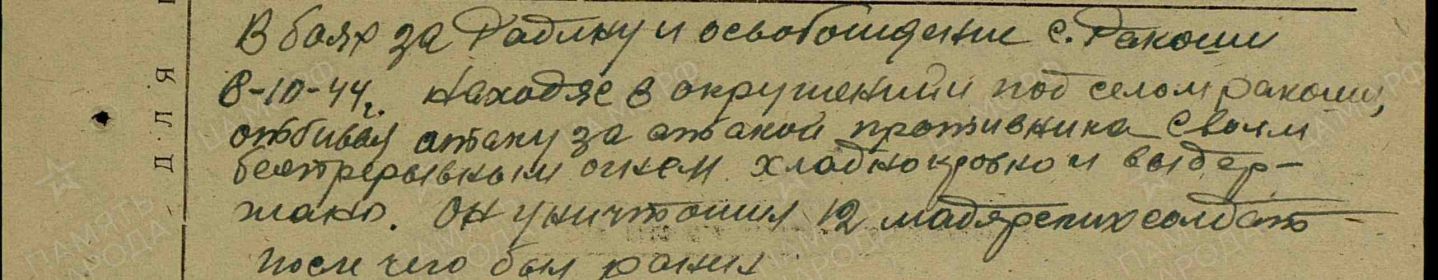 В боях за Родину и освобождение с. Ракоши
8-10-44г. находяс в окружении под селом Ракоши,
отбивая атаку за атакой противника своим
беспрерывным огнем хладнокровно и выдер-
жано. Он уничтожил 12 мадярских солдат
после чего был ранен
ДЛЯ
ПАМЯТЬ
НАРОДА